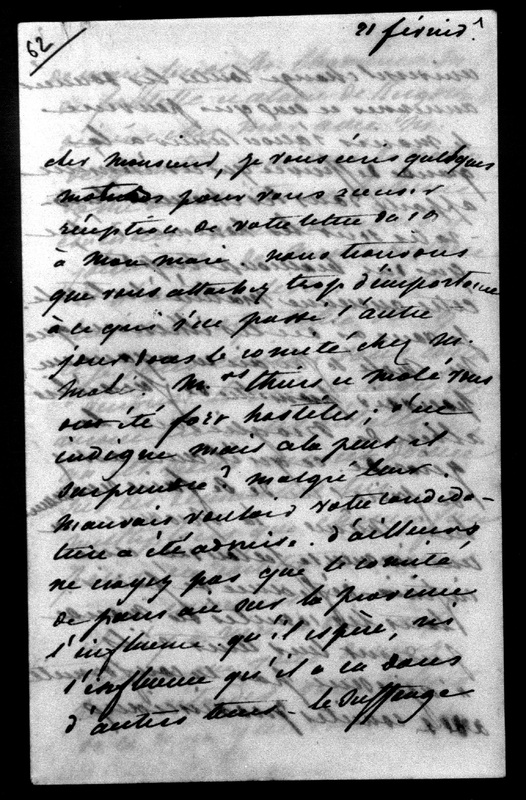 62
21 février
cher monsieur, je vous écris quelques
mots pour vous accuser
réception de votre lettre du 19
à mon mari nous trouvons
que vous attachez trop d'importance
à ce qui s'est passé l'autre
jour dans le comité chez M.
Molé. Mrs thiers et molé vous
ont été fort hostiles; c'est
indigne mais cela peut il
surprendre? malgré leur
mauvais vouloir votre candida-
ture a été admise. d'ailleurs
ne croyez pas que le comité
de paris ait sur la province
l'influence qu'il espère, ni
l'influence qu'il a eu dans
d'autres tems - le suffrage